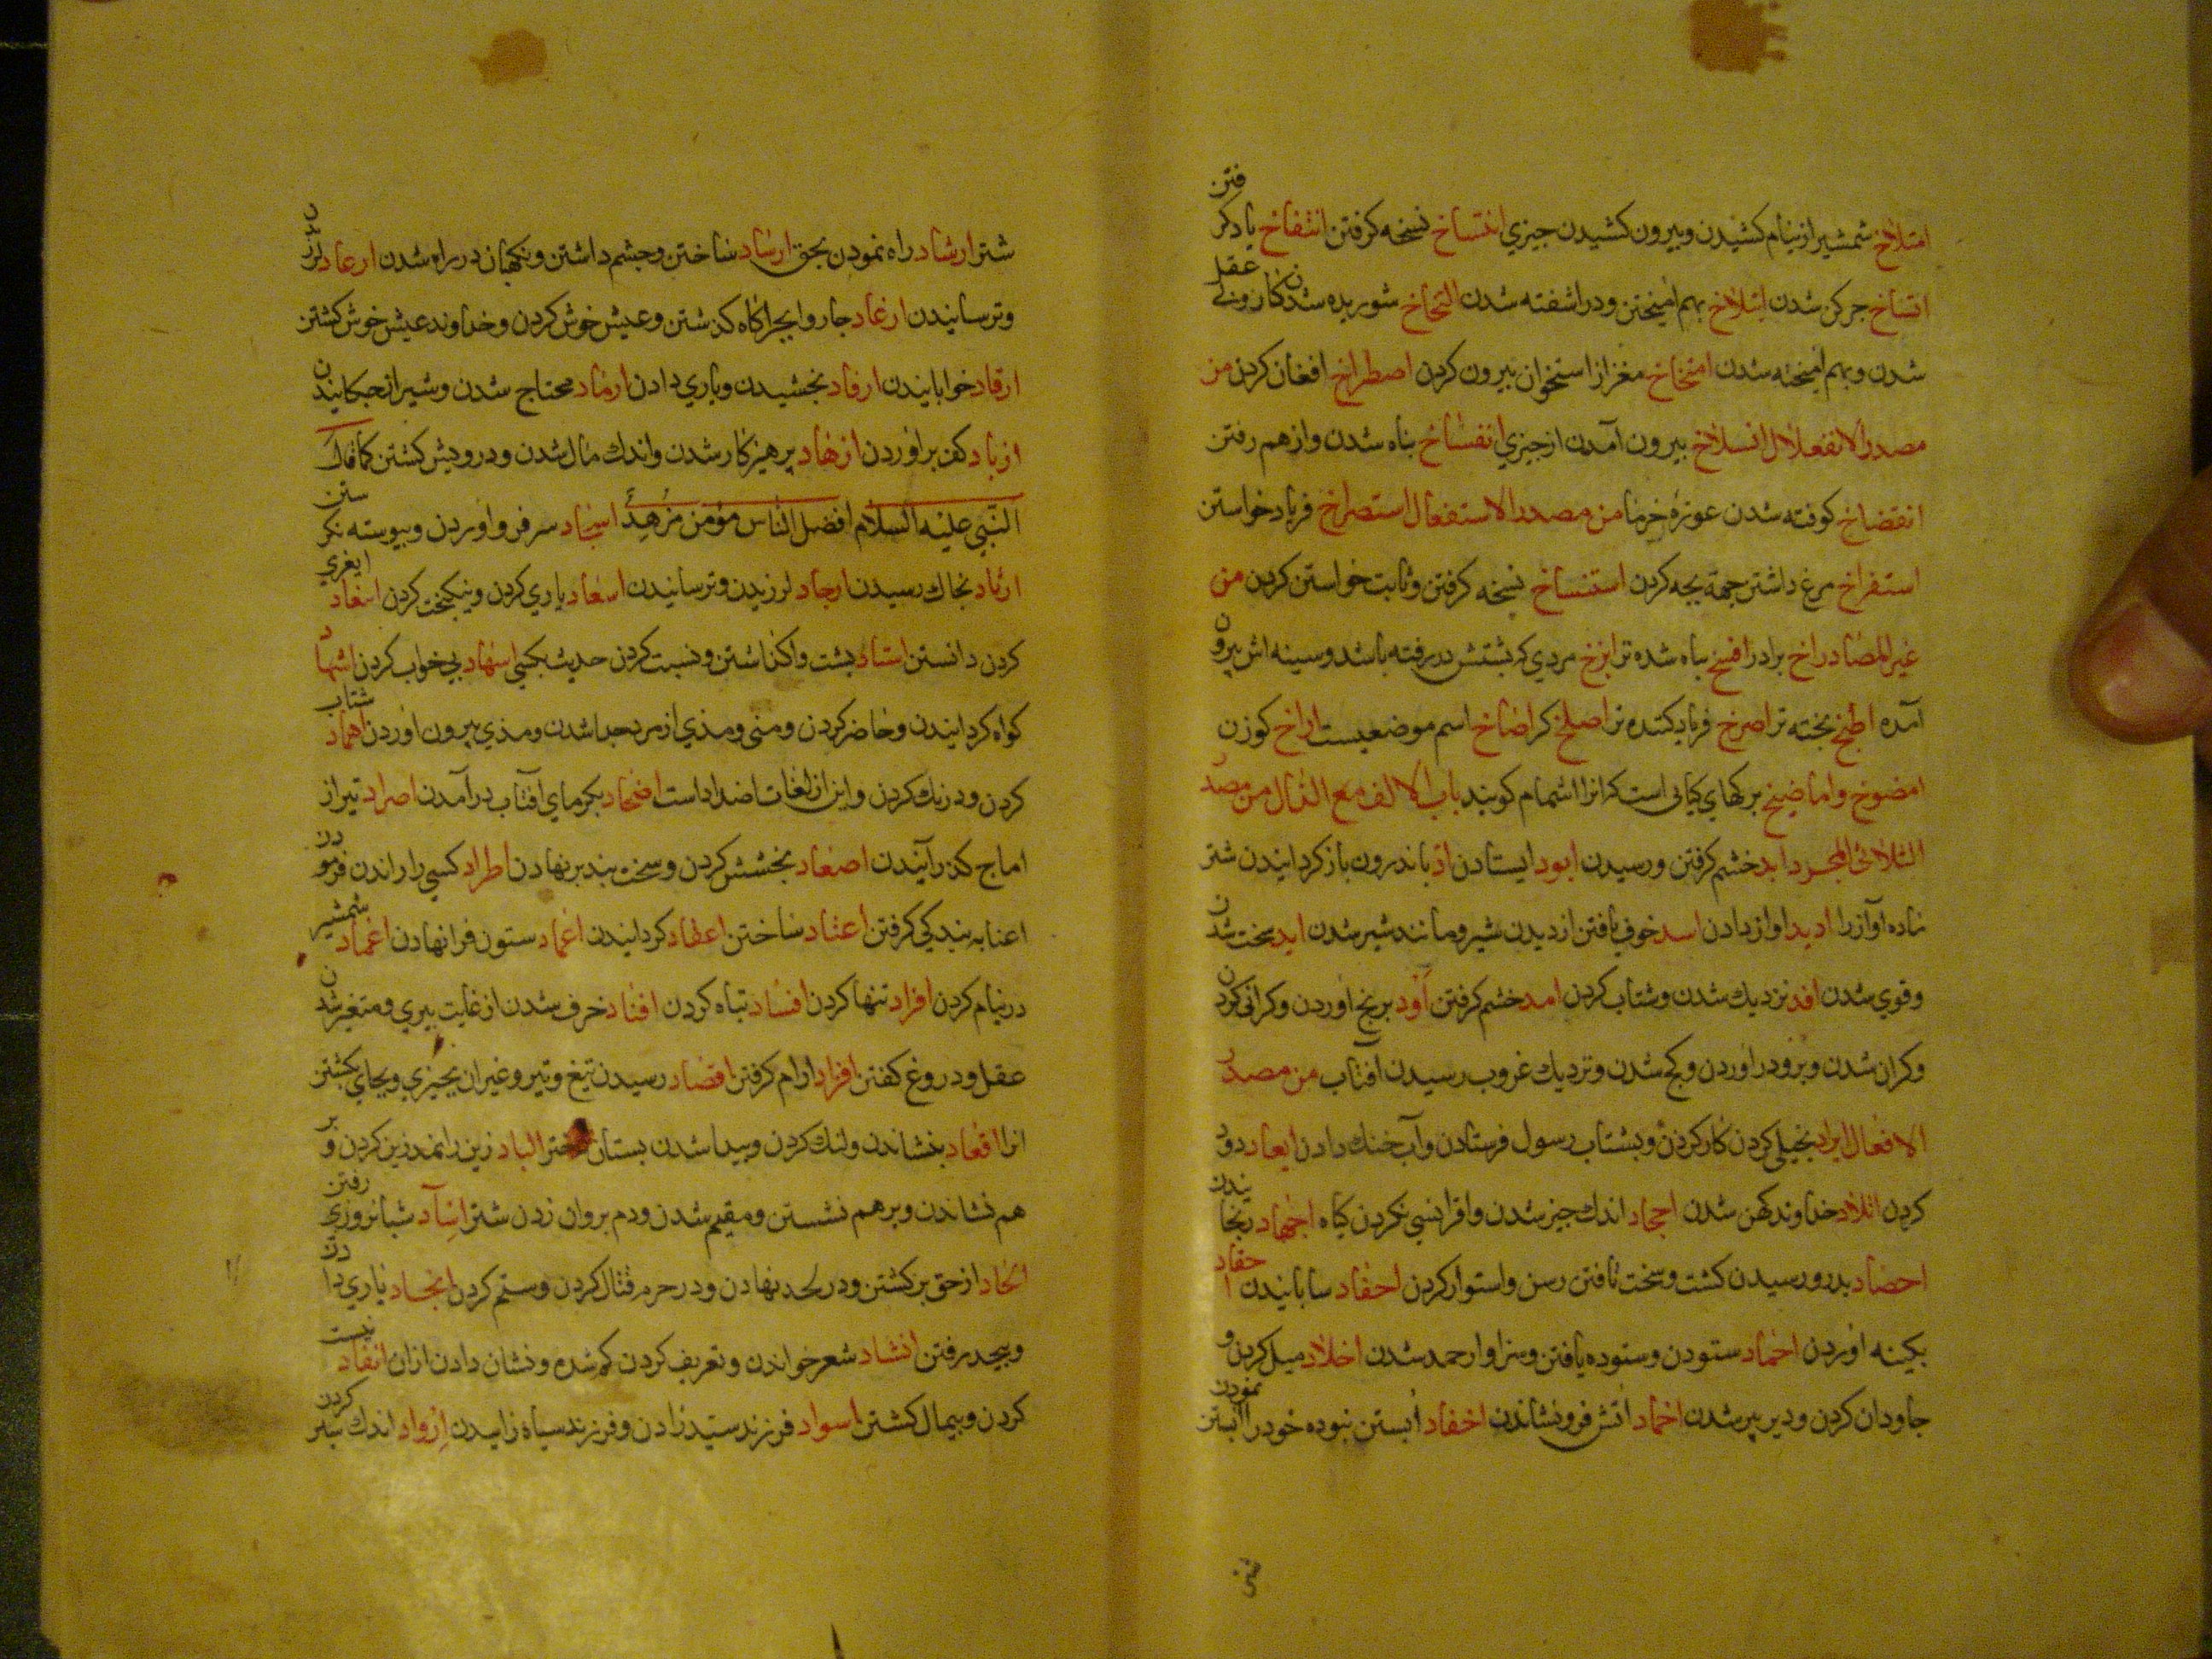 امتلاخ شمشیر از نیام کشیدن و بیرون کشیدن چیزي انتساخ نسخه کرفتن انتفاخ باد کر فتن
اتساخ جرکن شدن ایتلاخ بهم امیختن و در اشفته شدن التخاخ شوریده شدن کار و عقل
شدن و بهم امیخته شدن امتخاخ مغز از استخوان بیرون کردن اصطراخ افغان کردن من
مصدر الانفعلال انسلاخ بیرون آمدن از جیزي انفساخ تباه شدن و از هم رفتن
انفضاخ کوفته شدن غوزهٔ خرما من مصدر الاستفعال استصراخ فریاد خواستن
استفراخ مرغ داشتن جهة بجه کردن استنساخ نسخه کرفتن و ثابت خواستن کردن من
غیر المصادر اخ برادر افسخ تباه شده تر ابزخ مردي که پشتش در رفته باشد و سینه اش بیرون
آمده اطبخ بخته تر اصرخ فریاد کننده تر اصلخ کر اضاخ اسم موضعیست اراخ کوزن
امضوخ و اماضیخ برکهاي کیاهی است که انرا اشمام کویند باب الالف مع الدال من مصد
الثلاثی المجرد ابد خشم کرفتن و رسیدن ابود ایستادن اد باندرون باز کردانیدن شتر
ماده آواز را ادید اواز دادن اسد خوف یافتن از دیدن شیر و مانند شیر شدن اید سخت شدن
و قوي شدن افد نزدیك شدن و شتاب کردن امد خشم کرفتن اود برنج اوردن و کرانی کردن
و کران شدن و برو در اوردن و کج شدن و نزدیك غروب رسیدن افتاب من مصدر
الافعال ابراد بخیلی کردن کار کردن و بشتاب رسول فرستادن و آب خنك دادن ابعاد دور
کردن اتلاد خداوند کهن شدن اجحاد اندك چیز شدن و افرانسی نکردن کیاه اجهاد رنجانیدن
احصاد بدرو رسیدن کشت و سخت تافتن رسن و استوار کردن احفاد سابانیدن احقاد
بکینه اوردن احماد ستودن و ستوده یافتن و سزاوار حمد شدن اخلاد میل کردن و
جاودان کردن و دیر پیر شدن اخماد اتش فرو نشاندن اخفاد ابستن نبوده خود را ابستن نمودن
شتر ارشاد راه نمودن بحق ارصاد ساختن و چشم داشتن و نکهبان در راه شدن ارعاد لرزیدن
و ترسانیدن ارغاد جاروا بجراکاه کذشتن و عیش خوش کردن و خداوند عیش خوش کشتن
ارقاد خوابانیدن ارفاد بخشیدن و یاري دادن ارماد محتاج شدن و شیر از جکانیدن
ازباد کف براوردن ازهاد پرهیزکار شدن و اندك مال شدن و درویش کشتن کما قال
النّبی علیه السلام افضل الناس مؤمن مزهد اسجاد سر فرو اوردن و پیوسته نکر ستن
ارثاد بخاك رسیدن ارجاد لرزیدن و ترسانیدن اسعاد یاري کردن و نیکبخت کردن
کردن دانستن اسناد بشت واکذاشتن و نسبت کردن حدیث بکسی اسهاد بی خواب کردن اشهاد
کواه کردانیدن و حاضر کردن و منی و مذي از مرد جدا شدن و مذي بیرون اوردن اهماد شتاب
کردن و درنك کردن و این از لغات اضداد است اضحاد بکرماي آفتاب درآمدن اصراد تیر از
اماج کذرانیدن اصفاد بخشش کردن و سخت بند برنهادن اطراد کسی را راندن فرمودن
اعتا به بندکی کرفتن اعتاد ساختن اعقاد کردانیدن اعماد ستون فرا نهادن اغماد شمشیر
در نیام کردن افراد تنها کردن افساد تباه کردن افناد خرف شدن از غایت پیري و متغیر شدن
عقل و دروغ کفتن اقراد ارام کرفتن اقصاد رسیدن تیغ و تیر و غیر ان بچیزي و بجاي کشتن
انرا اقعاد بنشاندن و لنك کردن و پیدا شدن بستان دختر الباد زین را نمد زین کردن و بر
هم نشاندن و برهم نشستن و مقیم شدن و دم بر ران زدن شتر اسآد شبانروزي رفتن
الحاد از حق برکشتن و در لحد نهادن و در حرم قتال کردن و ستم کردن انجاد یاري دادن
و بنجد رفتن انشاد شعر خواندن و تعریف کردن کم شده و نشان دادن ازان انفاد نیست
کردن و بیمال کشتن اسواد فرزند سید زادن و فرزند سیاه زاییدن ازواد اندك کردن